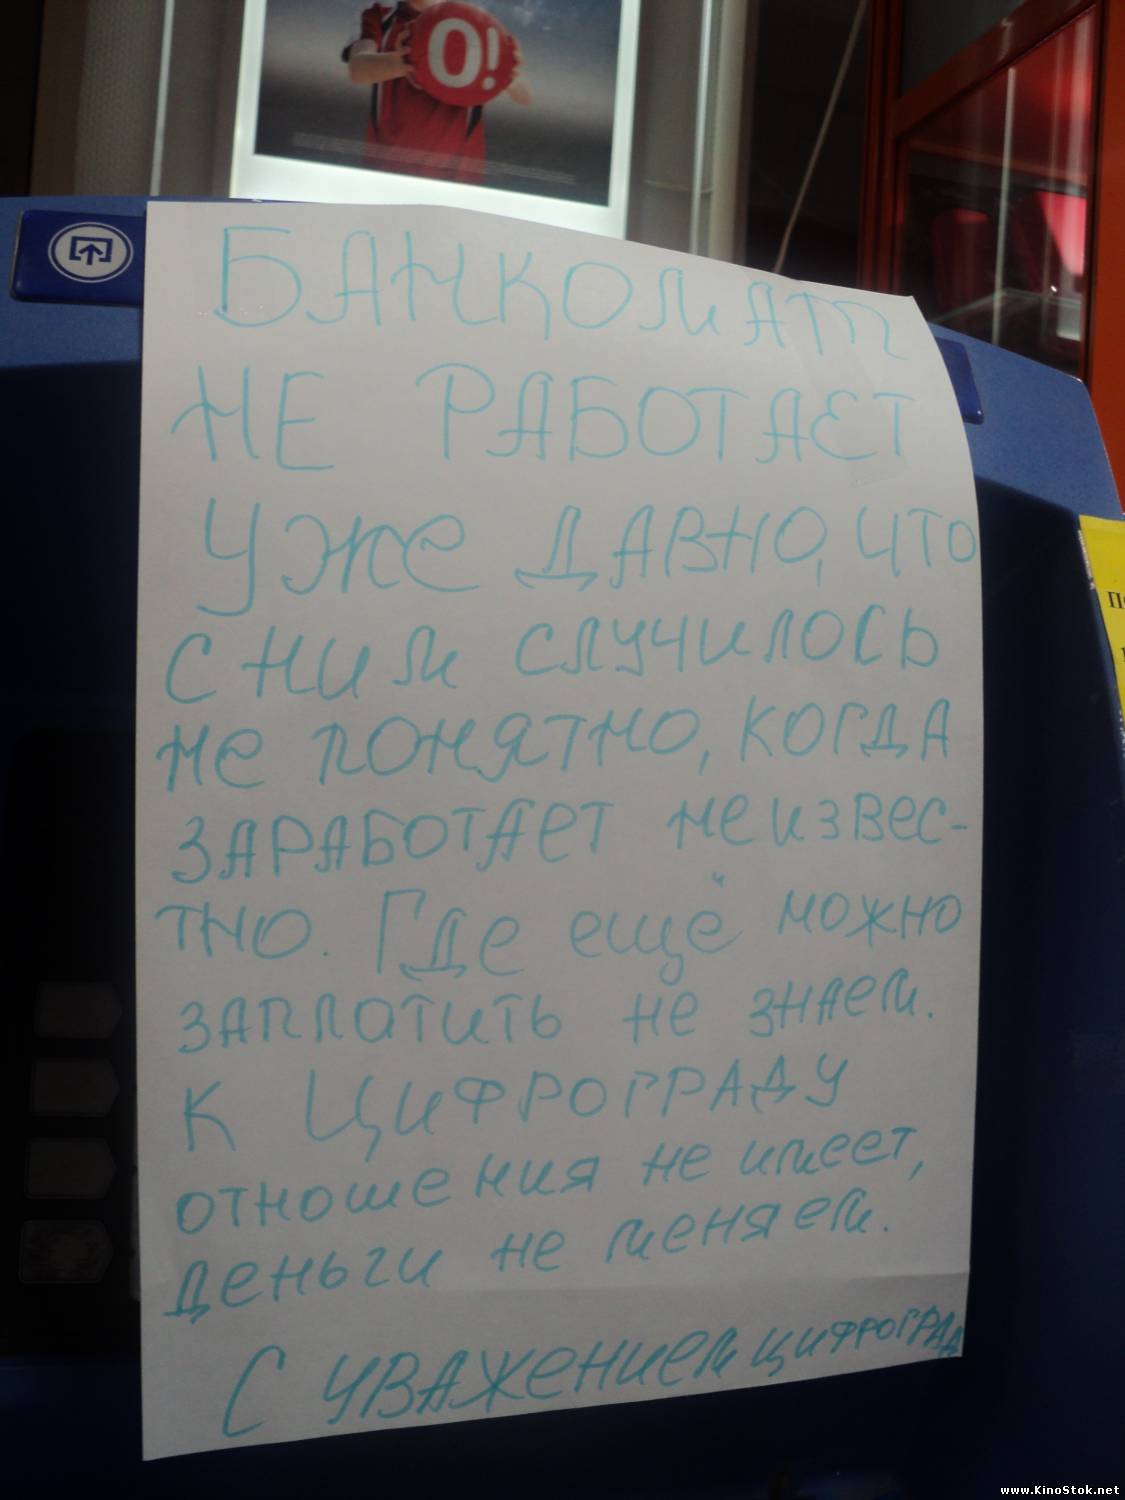 О!
БАНКОМАТ
НЕ РАБОТАЕТ
Уже ДАВНО, ЧТО
С НИМ СЛУЧИЛОСЬ
не понятно, когда
ЗАРАБОТАЕТ неизвес-
ТНО. Где ещё можно
заплатить не знаем.
К Цифрограду
отношения не имеет,
деньги не меняем.
С уважением Цифроград
www.KinoStok.net